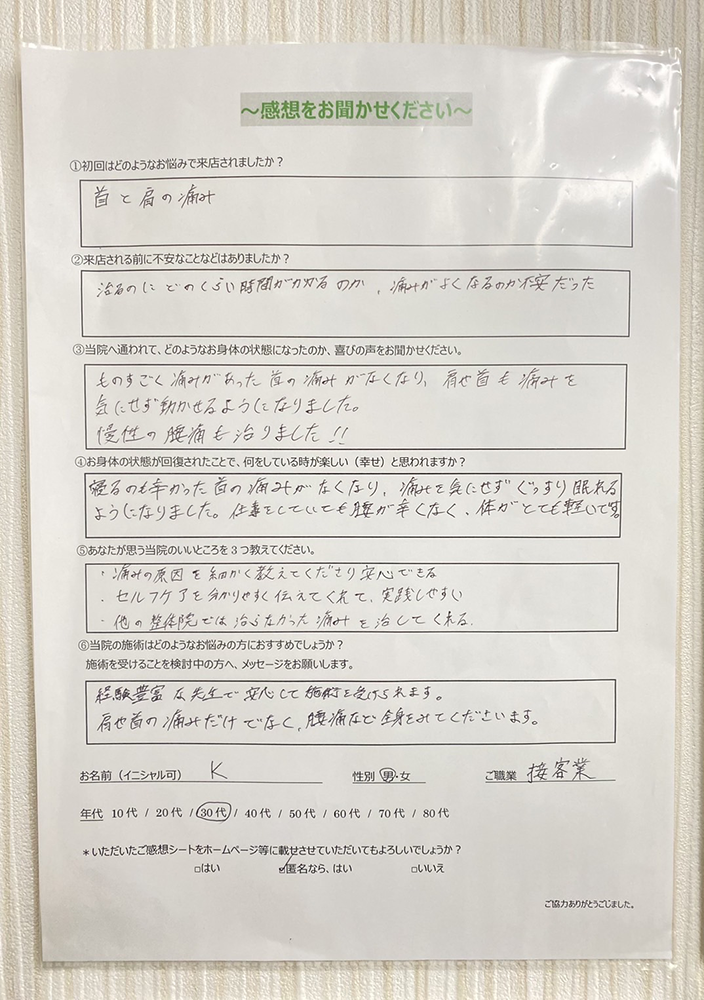 ～感想をお聞かせください～
①初回はどのようなお悩みで来店されましたか？
首と肩の痛み
②来店される前に不安なことなどはありましたか？
治るのにどのくらい時間がかかるのか、痛みがよくなるのか不安だった
③当院へ通われて、どのようなお身体の状態になったのか、喜びの声をお聞かせください。
ものすごく痛みがあった首の痛みがなくなり、肩や首も痛みを
気にせず動かせるようになりました。
慢性の腰痛も治りました!!
④お身体の状態が回復されたことで、何をしている時が楽しい（幸せ）と思われますか？
寝るのも辛かった首の痛みがなくなり、痛みを気にせずぐっすり眠れる
ようになりました。仕事をしていても腰が辛くなく、体がとても軽いです。
⑤あなたが思う当院のいいところを3つ教えてください。
・痛みの原因を細かく教えてくださり安心できる
・セルフケアを分かりやすく伝えてくれて、実践しやすい
・他の整体院では治らなかった痛みを治してくれる.
⑥当院の施術はどのようなお悩みの方におすすめでしょうか？
施術を受けることを検討中の方へ、メッセージをお願いします。
経験豊富な先生で安心して施術を受けられます。
肩や首の痛みだけでなく、腰痛など全身をみてくださいます。
お名前（イニシャル可） K 性別 男・女 ご職業 接客業
年代 10代 / 20代 / 30代 / 40代 / 50代 / 60代 / 70代 / 80代
＊いただいたご感想シートをホームページ等に載せさせていただいてもよろしいでしょうか？
□はい ☑匿名なら、はい □いいえ
ご協力ありがとうごじました。